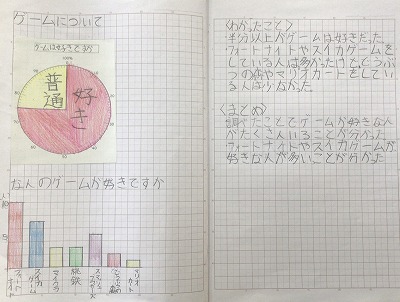 ゲームについて
ゲームは好きですか
100%
好き
普通
なんのゲームが好きですか
フォートナイト
スイカゲーム
マイクラ
桃鉄
スマッシュブラザーズ
どうぶつの森
マリオカート
〈わかったこと〉
・半分以上がゲームは好きだった。
・フォートナイトやスイカゲームを
している人は多かったけど、どうぶ
つの森やマリオカートをしてい
る人は少なかった。
〈まとめ〉
調べたことでゲームが好きな人
がたくさんいることが分かった。
フォートナイトやスイカゲームが
好きな人が多いことが分かった